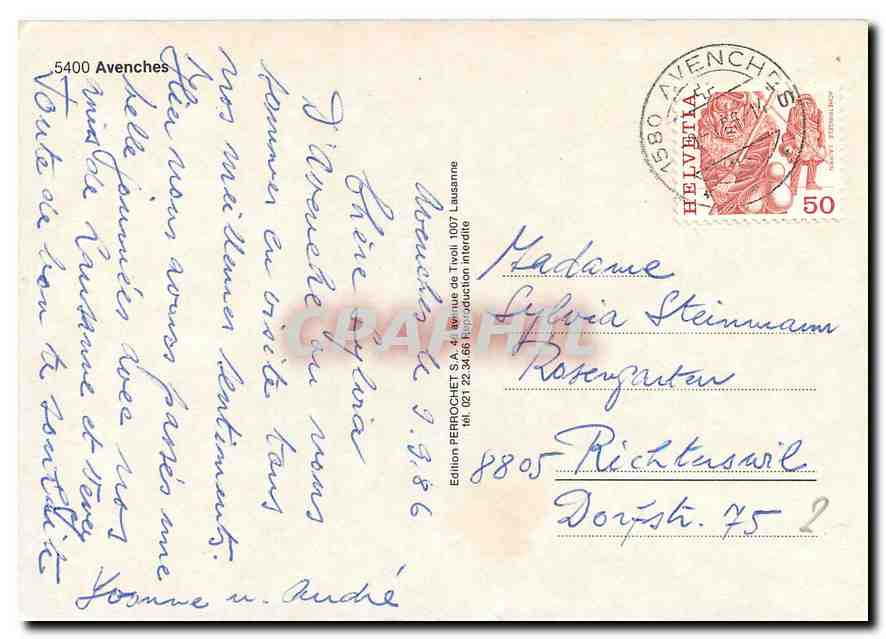 5400 Avenches
Avenches le 2.9.86
Chère Sylvia
D'Avenche ou nous
sommes en visite tous
nos meilleures sentiments.
Hier nous avons passés une
belle journées avec nos
amis de Lausanne et Vevey
Toute de bon te souhaite
Yvonne u. André
Edition PERROCHET S.A. 4a avenue de Tivoli 1007 Lausanne
tél. 021 22.34.66 Reproduction interdite
CPAPHIL
1580 AVENCHES
HELVETIA
ACHETRINGELE LAUPEN
50
Madame
Sylvia Steinmann
Rosengarten
8805 Richterswil
Dorfstr. 75
2